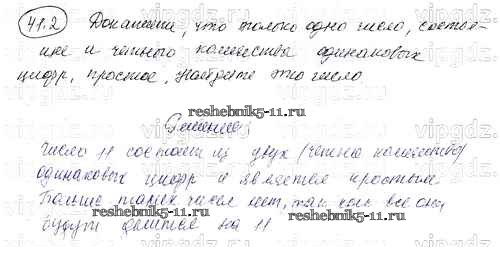 41.2 Докажите, что только одно число, состоя-
щее из четного количества одинаковых
цифр, простое. Найдите это число
reshebnik5-11.ru
Решение:
число 11 состоит из двух (четное количество)
одинаковых цифр и является простым.
reshebnik5-11.ru
Больше таких чисел нет, так как все они
будут делится на 11
reshebnik5-11.ru